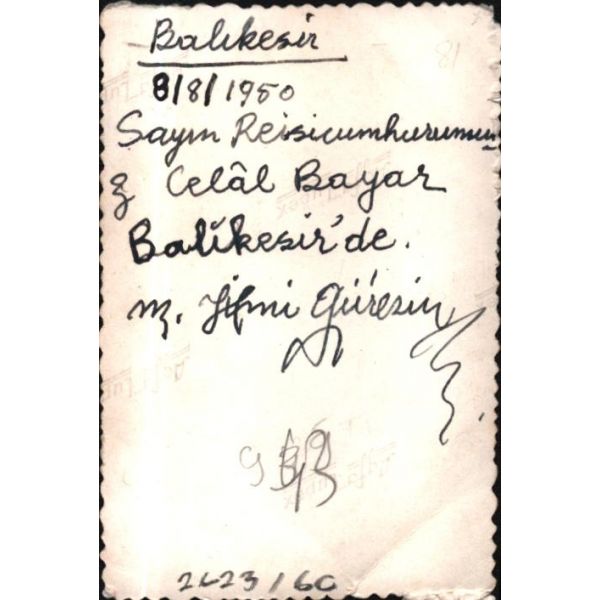 Balıkesir
8/8/1950
Sayın Reisicumhurumu
z Celâl Bayar
Balıkesir'de.
m. Güreşin
2623/60